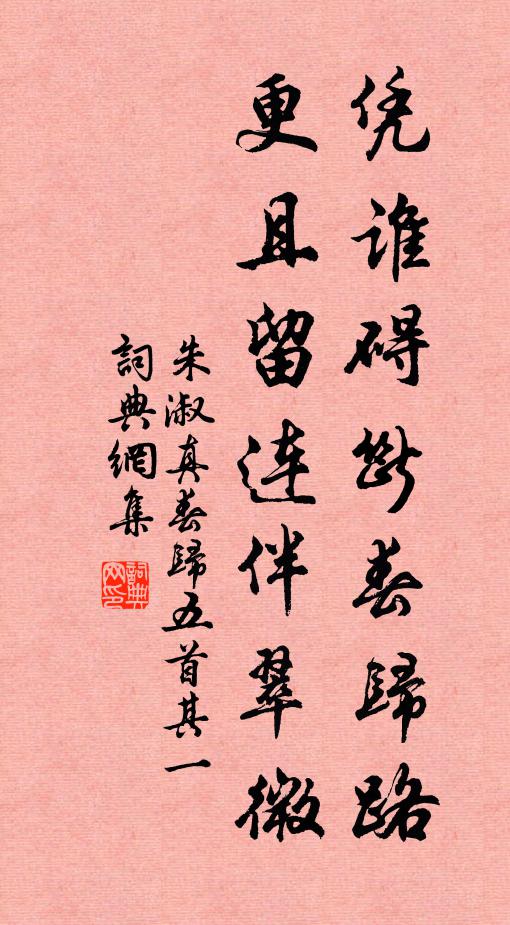 凭谁碍断春歸路
更且留連伴翠微
朱淑真春歸五首其一
詞典網集
詞典网印